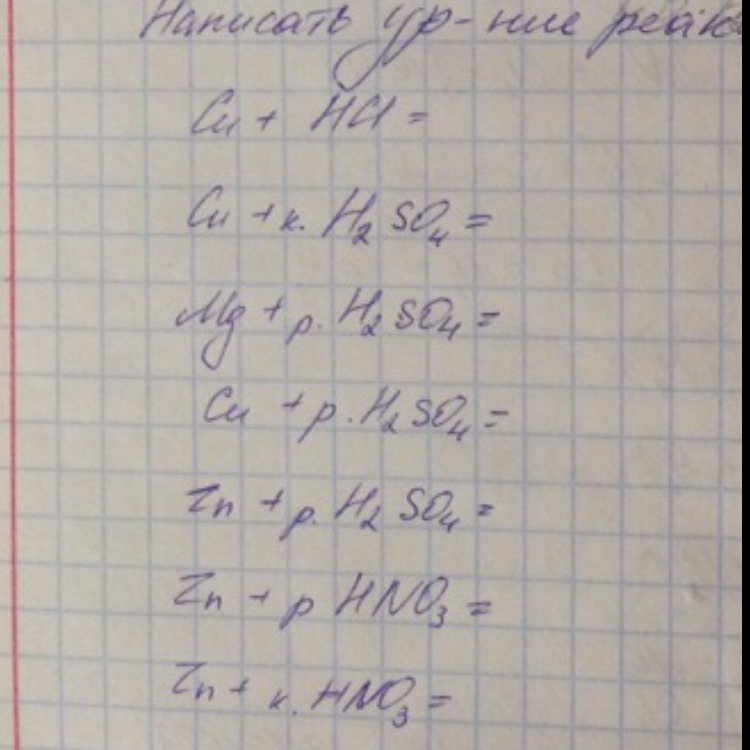 Написать ур-ние реак
Cu + HCl =
Cu + к. H₂SO₄ =
Mg + р. H₂SO₄ =
Cu + р. H₂SO₄ =
Zn + р. H₂SO₄ =
Zn + р HNO₃ =
Zn + к. HNO₃ =